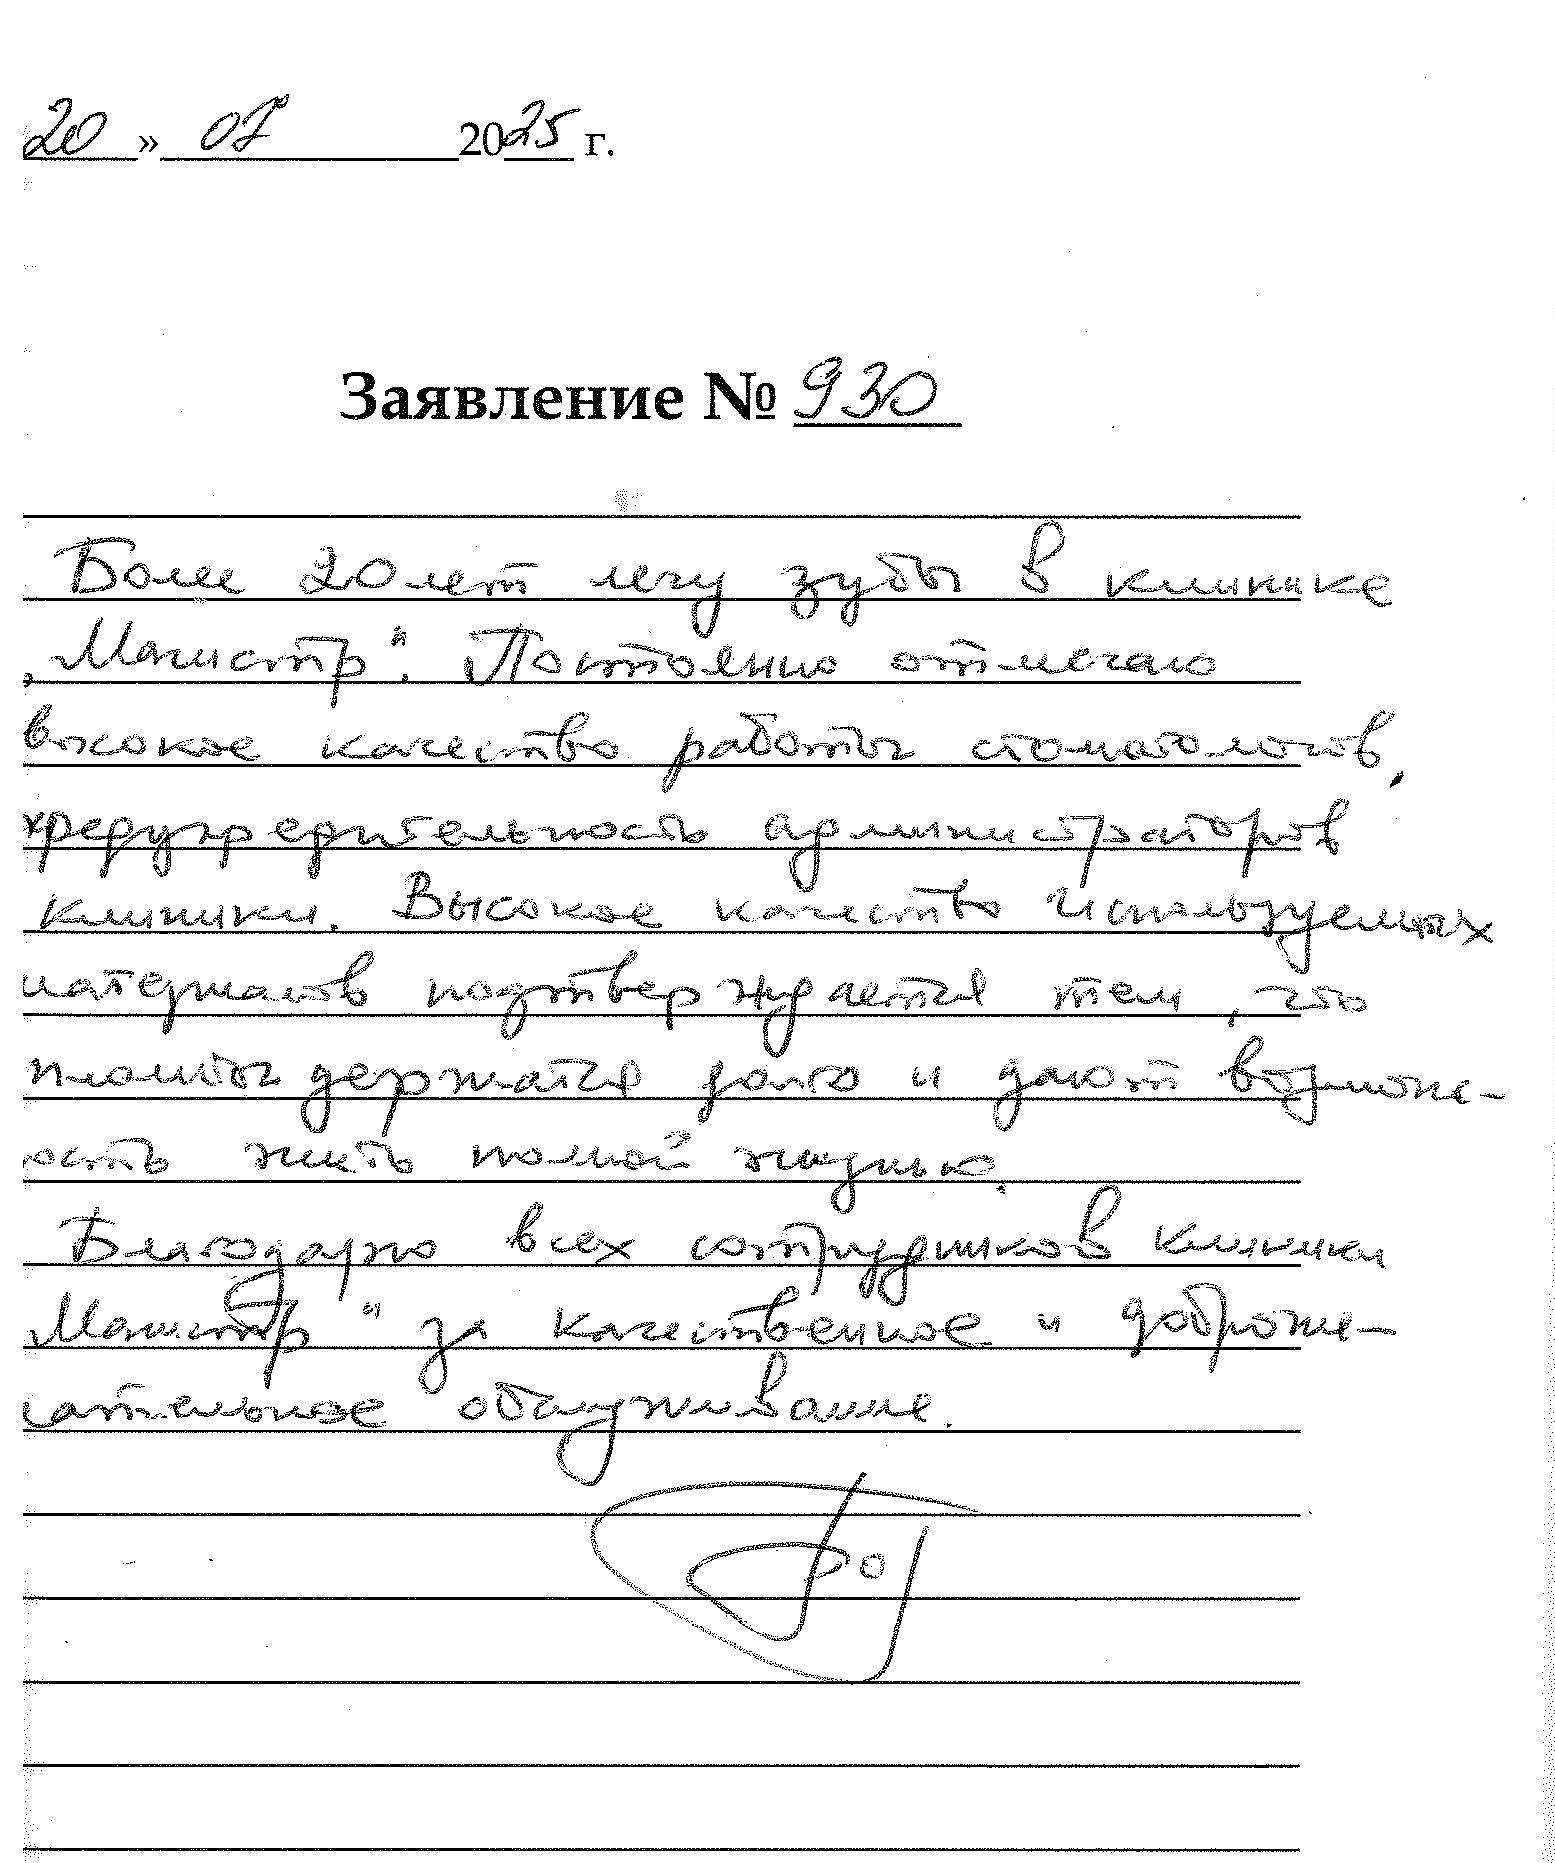 20 » 07 2025 г.
Заявление № 930
Более 20 лет лечу зубы в клинике
„Магистр“. Постоянно отмечаю
высокое качество работы стоматологов,
предупредительность администраторов
клиники. Высокое качество используемых
материалов подтверждается тем, что
пломбы держатся долго и дают возможн-
ость жить полной жизнью.
Благодарю всех сотрудников клиники
Магистр“ за качественное и доброже-
лательное обслуживание.